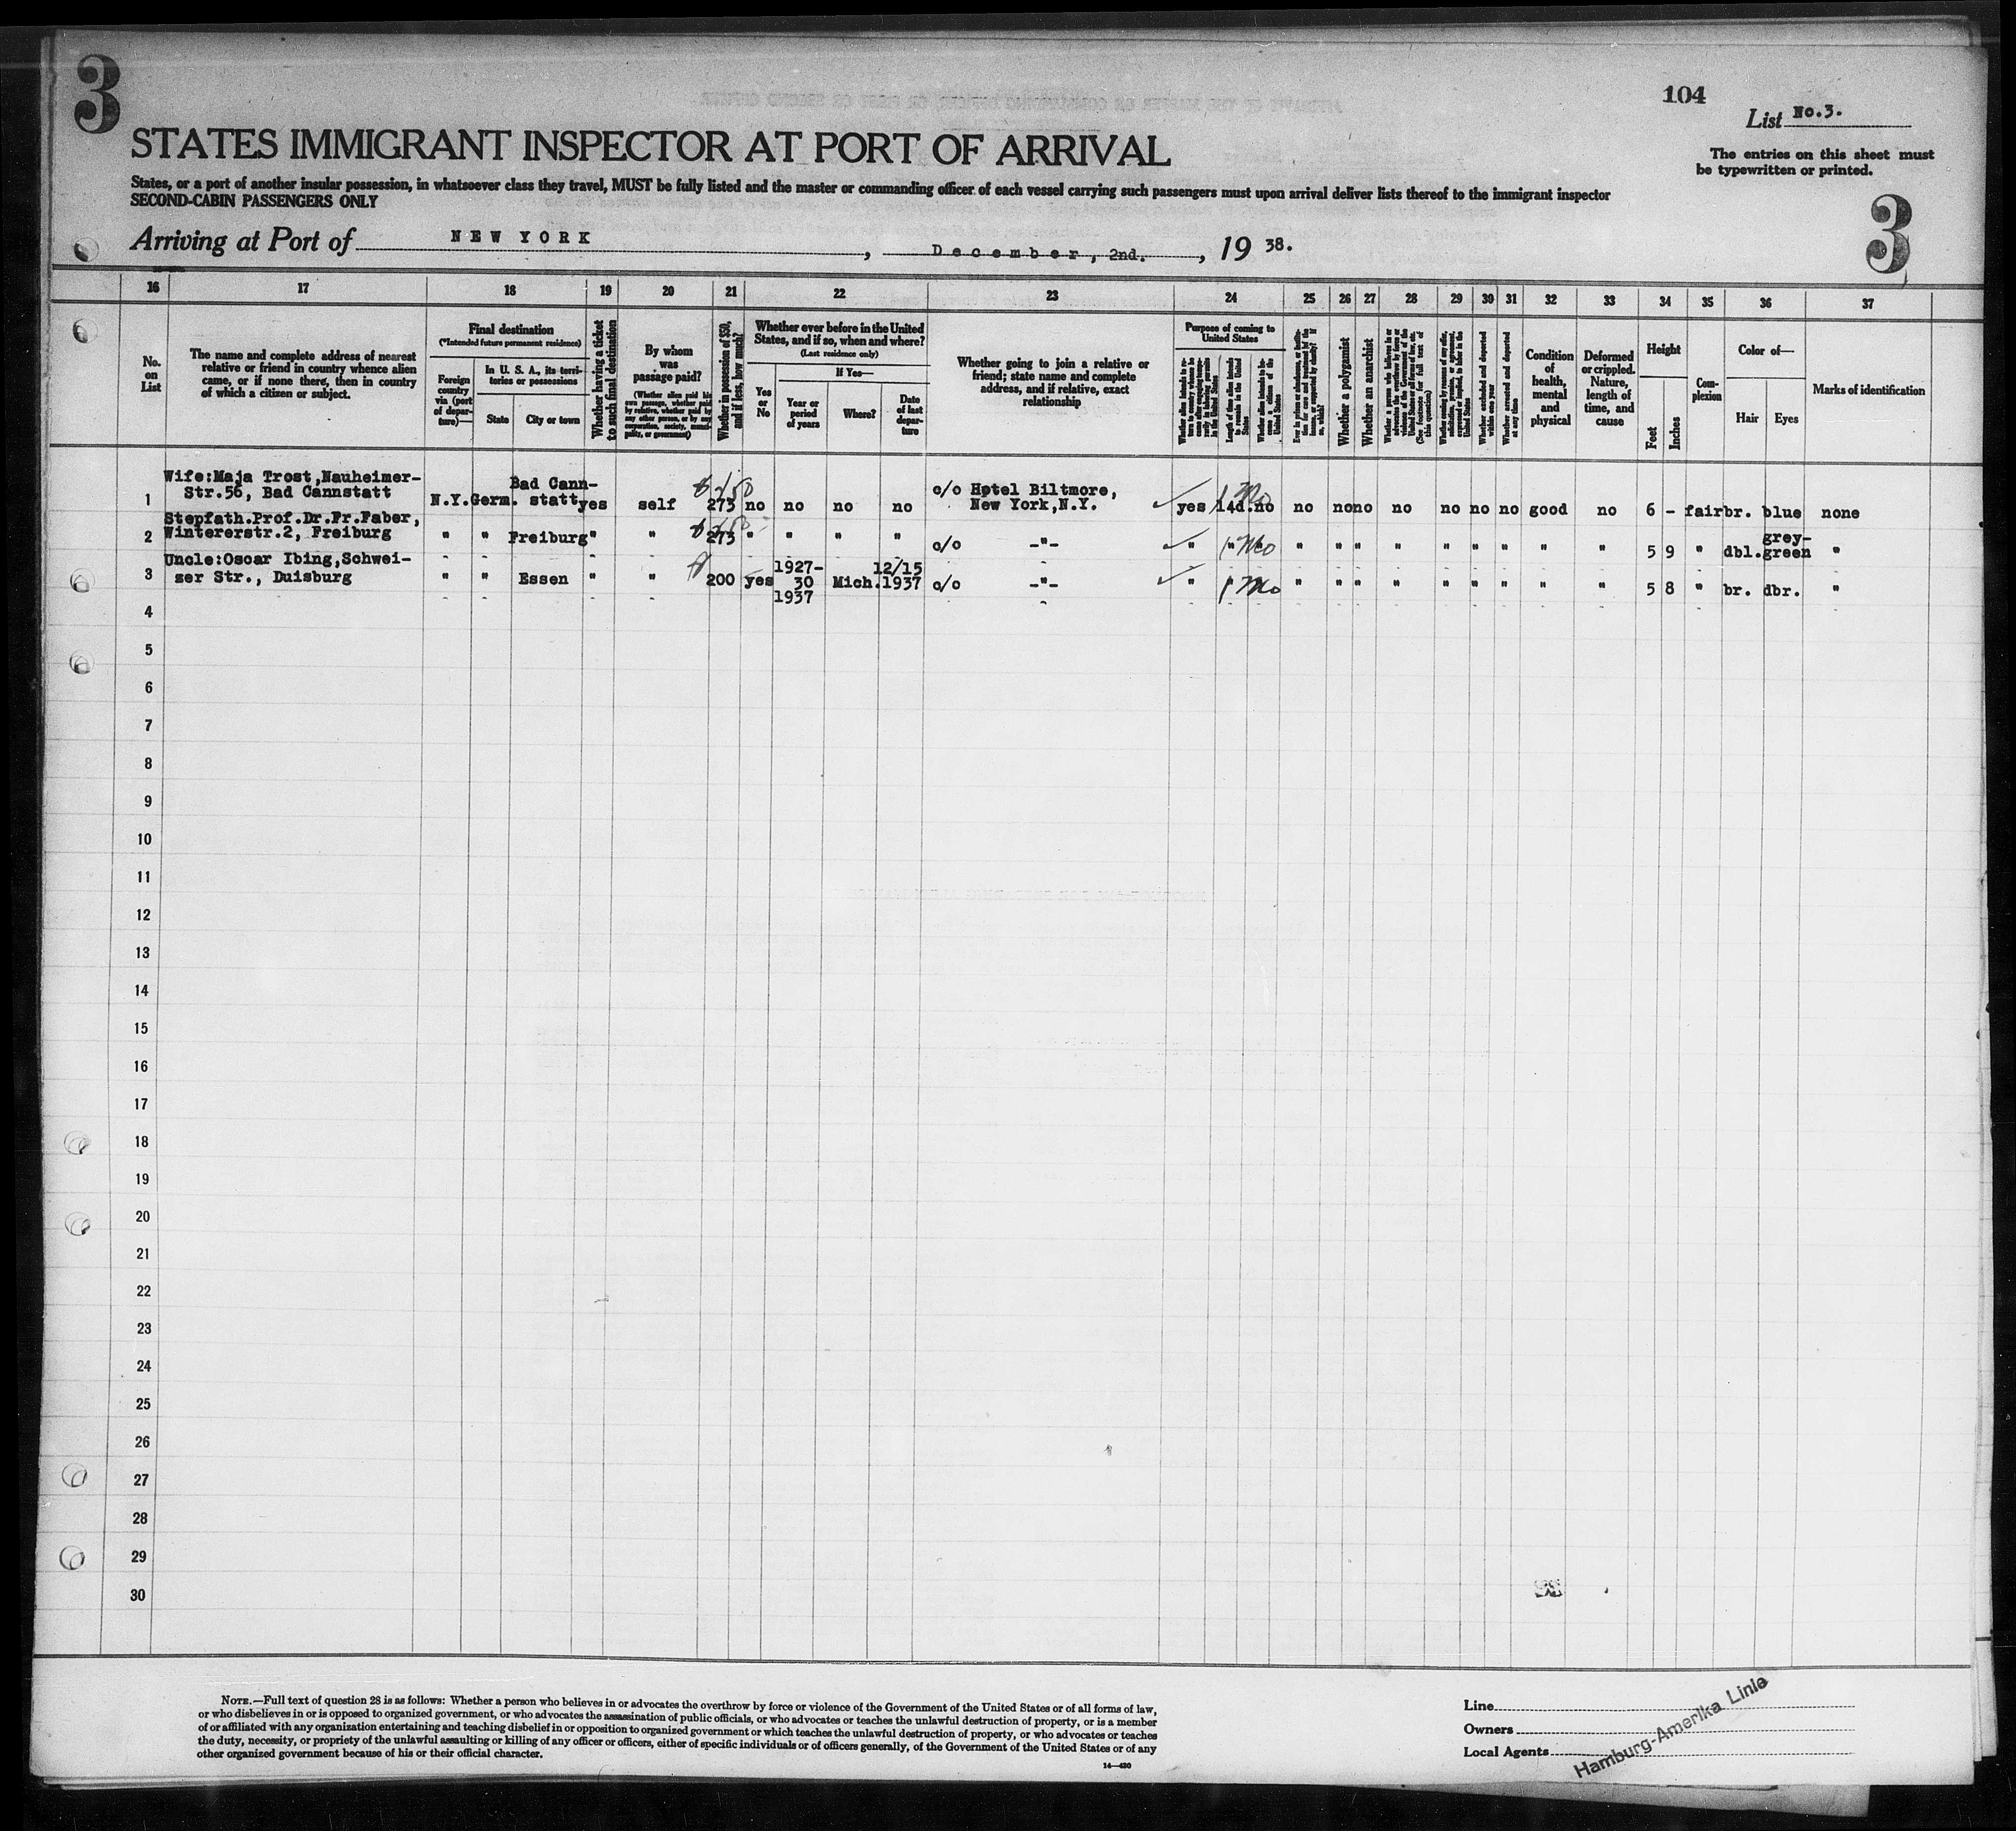 3
104
List No.3.
STATES IMMIGRANT INSPECTOR AT PORT OF ARRIVAL
The entries on this sheet must
be typewritten or printed.
States, or a port of another insular possession, in whatsoever class they travel, MUST be fully listed and the master or commanding officer of each vessel carrying such passengers must upon arrival deliver lists thereof to the immigrant inspector
SECOND-CABIN PASSENGERS ONLY
3
Arriving at Port of NEW YORK, December, 2nd., 19 38.
16 17 18 19 20 21 22 23 24 25 26 27 28 29 30 31 32 33 34 35 36 37
No.
on
List
The name and complete address of nearest
relative or friend in country whence alien
came, or if none there, then in country
of which a citizen or subject.
Final destination
(*Intended future permanent residence)
Foreign
country
via (port
of depar-
ture)—
In U. S. A., its terri-
tories or possessions
State
City or town
Whether having a ticket
to such final destination
By whom
was
passage paid?
(Whether alien paid his
own passage, whether paid
by relative, whether paid by
any other person, or by any
corporation, society, munici-
pality, or government)
Whether in possession of $50,
and if less, how much?
Whether ever before in the United
States, and if so, when and where?
(Last residence only)
Yes
or
No
If Yes—
Year or
period
of years
Where?
Date
of last
depar-
ture
Whether going to join a relative or
friend; state name and complete
address, and if relative, exact
relationship
Purpose of coming to
United States
Length of time alien intends
to remain in the United
States
Whether alien intends to be-
come a citizen of the
United States
Whether a polygamist
Whether an anarchist
Whether excluded and deported
within one year
Whether arrested and deported
at any time
Condition
of
health,
mental
and
physical
Deformed
or crippled.
Nature,
length of
time, and
cause
Height
Feet
Inches
Com-
plexion
Color of—
Hair
Eyes
Marks of identification
Wife:Maja Trost,Nauheimer-
1 Str.56, Bad Cannstatt N.Y. Germ. Bad Cann-
statt yes self 273 no no no no c/o Hotel Biltmore,
New York,N.Y. yes 14d. no no no no no no no no good no 6 - fair br. blue none
Stepfath.Prof.Dr.Fr.Faber,
2 Wintererstr.2, Freiburg " " Freiburg " " 273 " " " " c/o -"- " " 1 Mo " " " " " " " " " 5 9 " dbl. grey-
green "
Uncle:Oscar Ibing,Schwei-
3 zer Str., Duisburg " " Essen " " 200 yes 1927-
30
1937 Mich. 12/15
1937 c/o -"- " 1 Mo " " " " " " " " " 5 8 " br. dbr. "
4
5
6
7
8
9
10
11
12
13
14
15
16
17
18
19
20
21
22
23
24
25
26
27
28
29
30
NOTE.—Full text of question 28 is as follows: Whether a person who believes in or advocates the overthrow by force or violence of the Government of the United States or of all forms of law,
or who disbelieves in or is opposed to organized government, or who advocates the assassination of public officials, or who advocates or teaches the unlawful destruction of property, or is a member
of or affiliated with any organization entertaining and teaching disbelief in or opposition to organized government or which teaches the unlawful destruction of property, or who advocates or teaches
the duty, necessity, or propriety of the unlawful assaulting or killing of any officer or officers, either of specific individuals or of officers generally, of the Government of the United States or of any
other organized government because of his or their official character.
14—430
Line
Owners
Local Agents
Hamburg-Amerika Linie